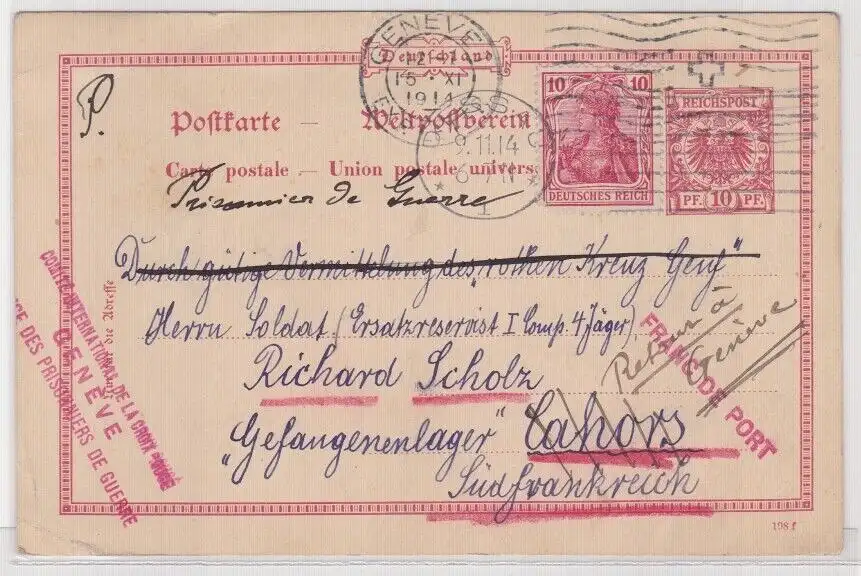 GENÈVE
Deutschland
12-17
15-XI
1914
Postkarte — Weltpostverein
9.11.14
6-7 N
1
10 10
DEUTSCHES REICH
REICHSPOST
PF. 10 PF.
Carte postale — Union postale univers
P.
Prisonnier de Guerre
Durch gütige Vermittelung des „rothen Kreuz Genf"
Herrn Soldat (Ersatzreservist I Comp. 4 Jäger)
Richard Scholz
„Gefangenenlager" Cahors
Südfrankreich
Retour à
Genève
FRANC DE PORT
COMITÉ INTERNATIONAL DE LA CROIX-ROUGE
GENÈVE
DES PRISONNIERS DE GUERRE
198 f